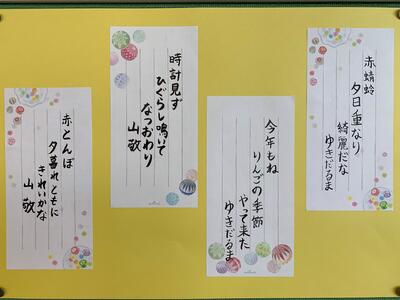 赤蜻蛉
夕日重なり
綺麗だな
ゆきだるま
今年もね
りんごの季節
やって来た
ゆきだるま
時計見ず
ひぐらし鳴いて
なつおわり
山敬
赤とんぼ
夕暮れともに
きれいかな
山敬